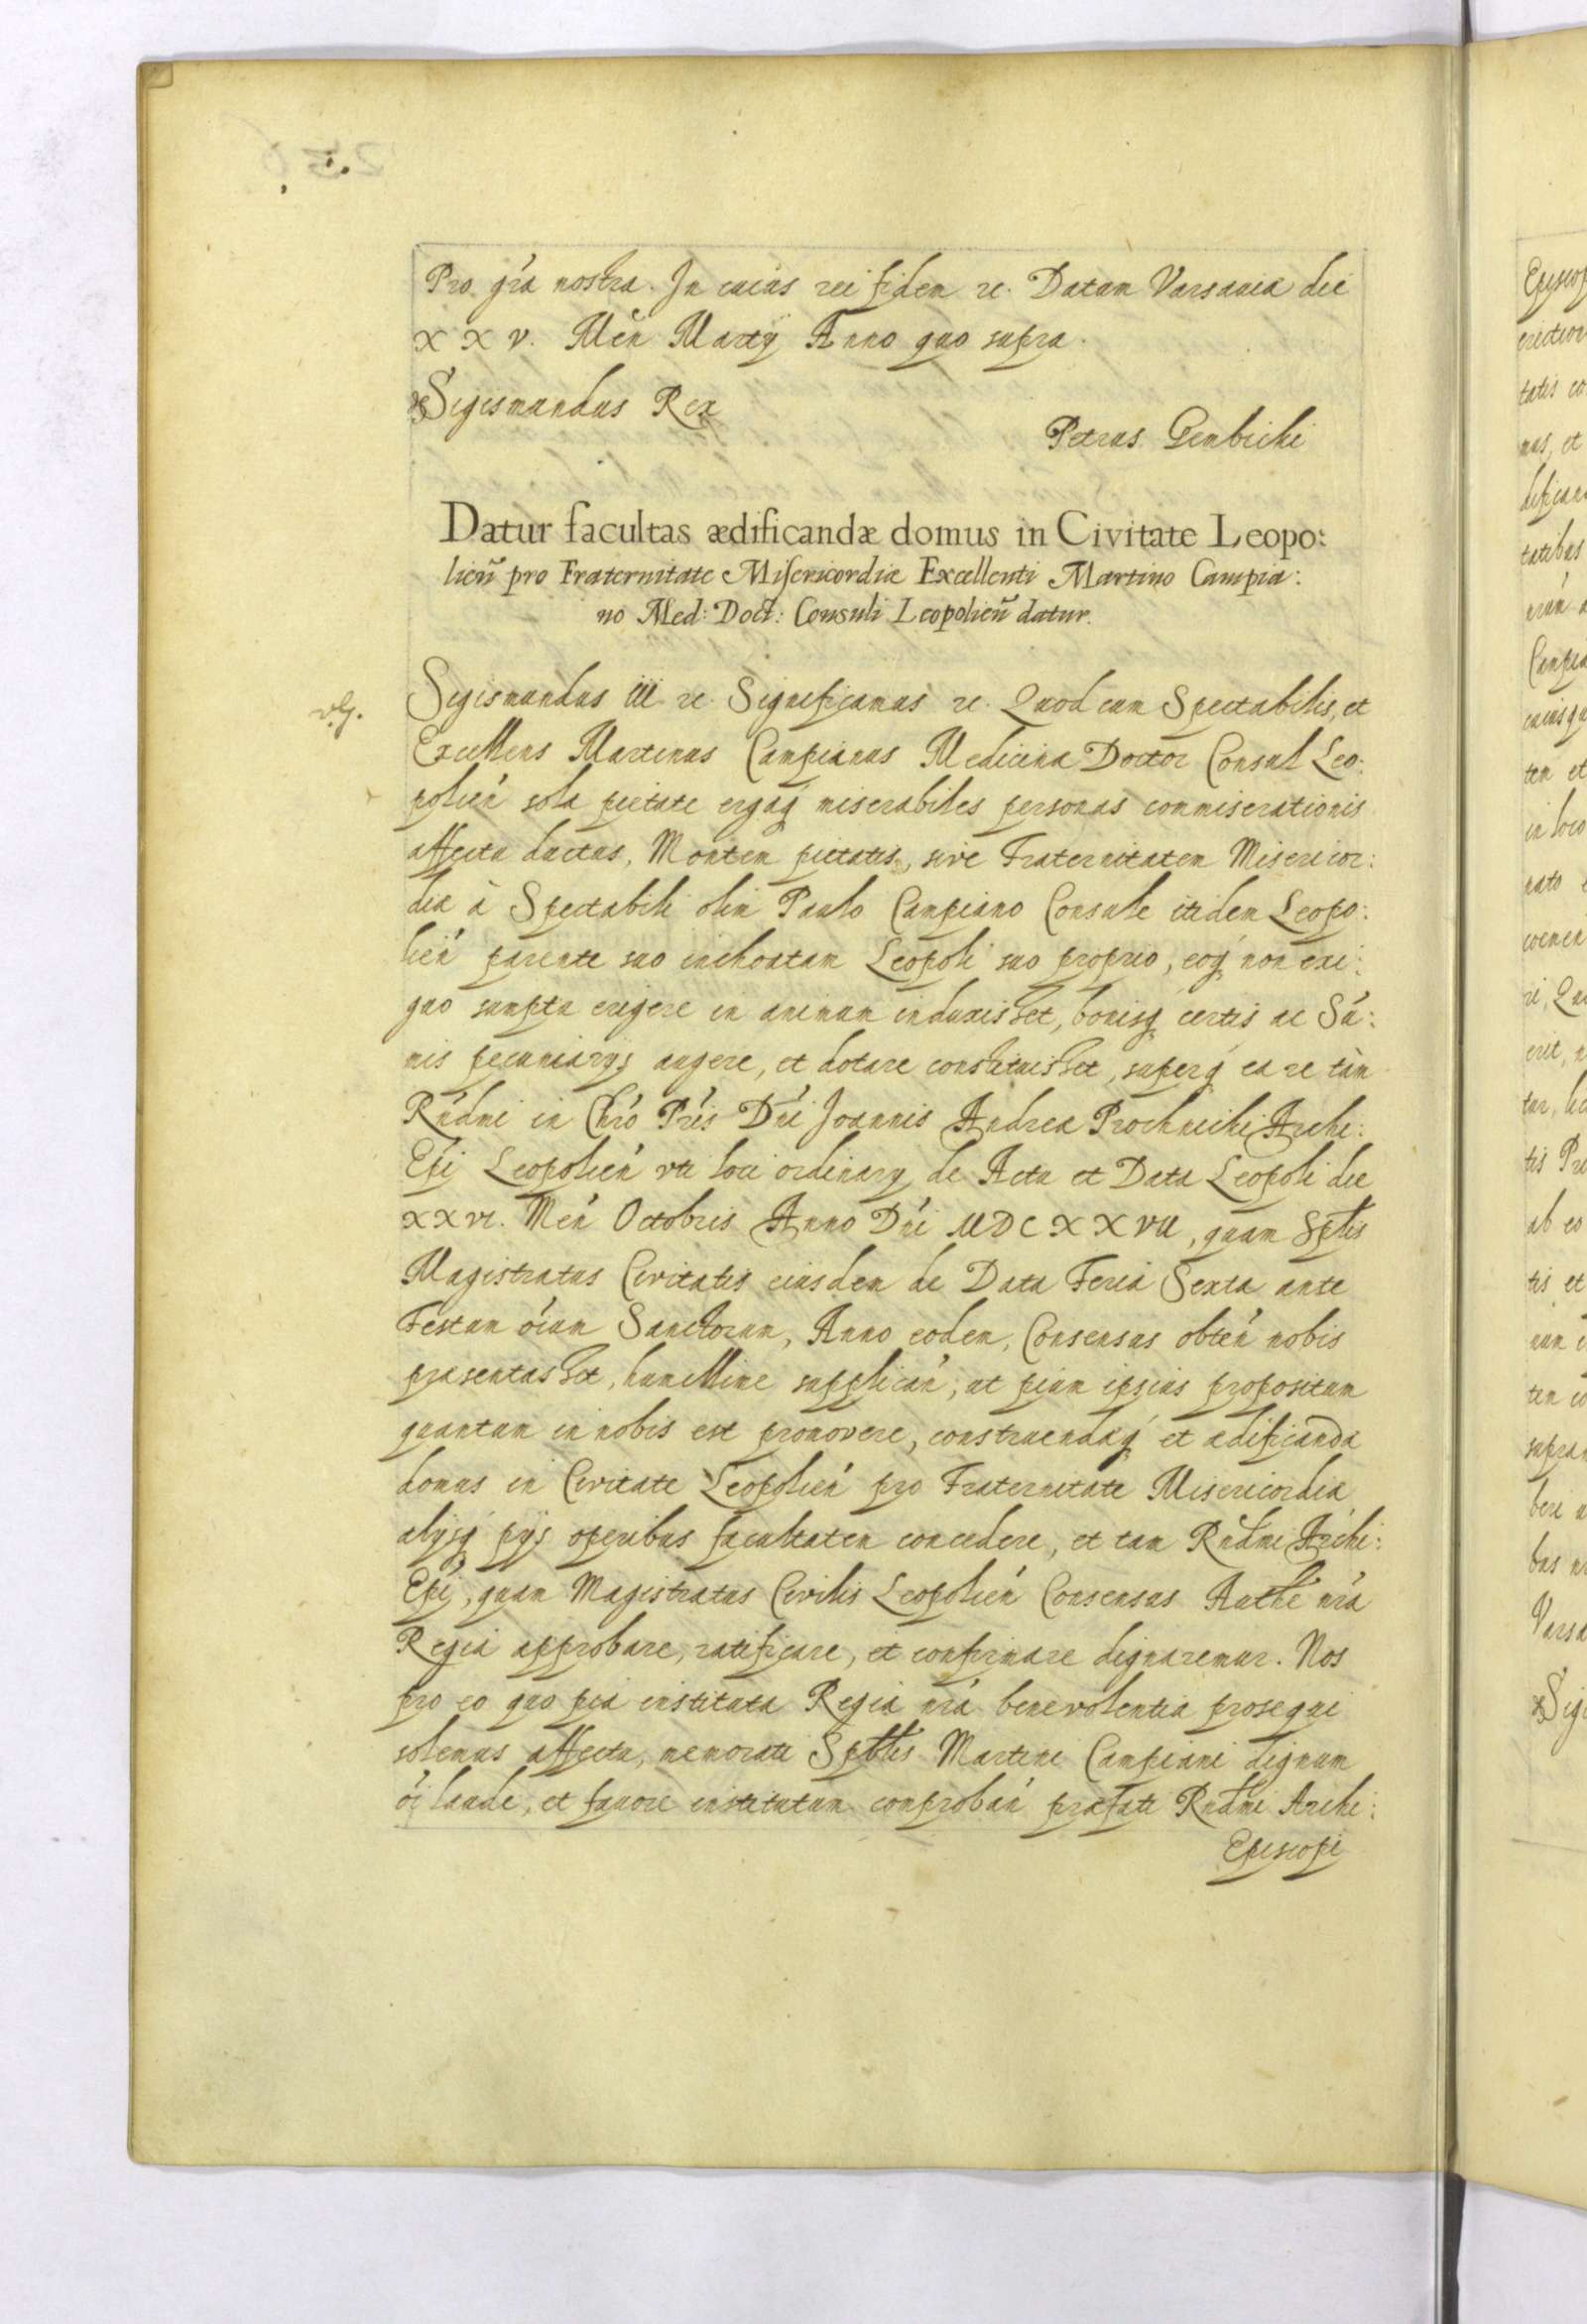 Pro gr̃a nostra. In cuius rei fidem ꝛc. Datum Varsauiæ die
XXV. Men̄ Martÿ Anno quo supra.
Sigismundus Rex
Petrus Gembicki
Datur facultas ædificandæ domus in Civitate Leopo:
lien̄ pro Fraternitate Misericordiæ Excellenti Martino Campia:
no Med: Doct: Consuli Leopolien̄ datur.
Sigismundus III ꝛc. Significamus ꝛc. Quod cum Spectabilis, et
Excellens Martinus Campianus Medicinæ Doctor Consul Leo:
polien̄ sola pietate ergaq́ miserabiles personas commiserationis
affectu ductus, Montem pietatis, sive Fraternitatem Misericor:
diæ à Spectabili olim Paulo Campiano Consule itidem Leopo:
lien̄ parente suo inchoatam Leopoli suo proprio, eoq́ non exi:
guo sumptu erigere in animum induxisset, bonisq́ certis ac Sū:
mis pecuniarÿs augere, et dotare constituisset, superq́ ea re tàm
Rn̄dmi in Chr̄o Pr̄is Dn̄i Joannis Andreæ Prochnicki Archi:
Ep̄i Leopolien̄ vti loci ordinarÿ de Actu et Data Leopoli die
XXVI. Men̄ Octobris Anno Dn̄i MDCXXVII, quam Sptlis
Magistratus Civitatis eiusdem de Data Feria Sexta ante
Festum ōium Sanctorum, Anno eodem, Consensus obten̄ nobis
præsentasset, humillime supplicān, ut pium ipsius propositum
quantum in nobis est promovere, construendæq́ et ædificandæ
domus in Civitate Leopolien̄ pro Fraternitate Misericordiæ
alÿsq́ pÿs operibus facultatem concedere, et tam Rn̄dmi Archi:
Ep̄i, quam Magistratus Civilis Leopolien̄ Consensus Autħe nr̄a
Regia approbare, ratificare, et confirmare dignaremur. Nos
pro eo quo pia instituta Regia nr̄a benevolentia prosequi
solemus affectu, memorati Sptłis Martini Campiani dignum
ōi laude, et fauore institutum comprobān præfati Rn̄dmi Archi:
Episcopi